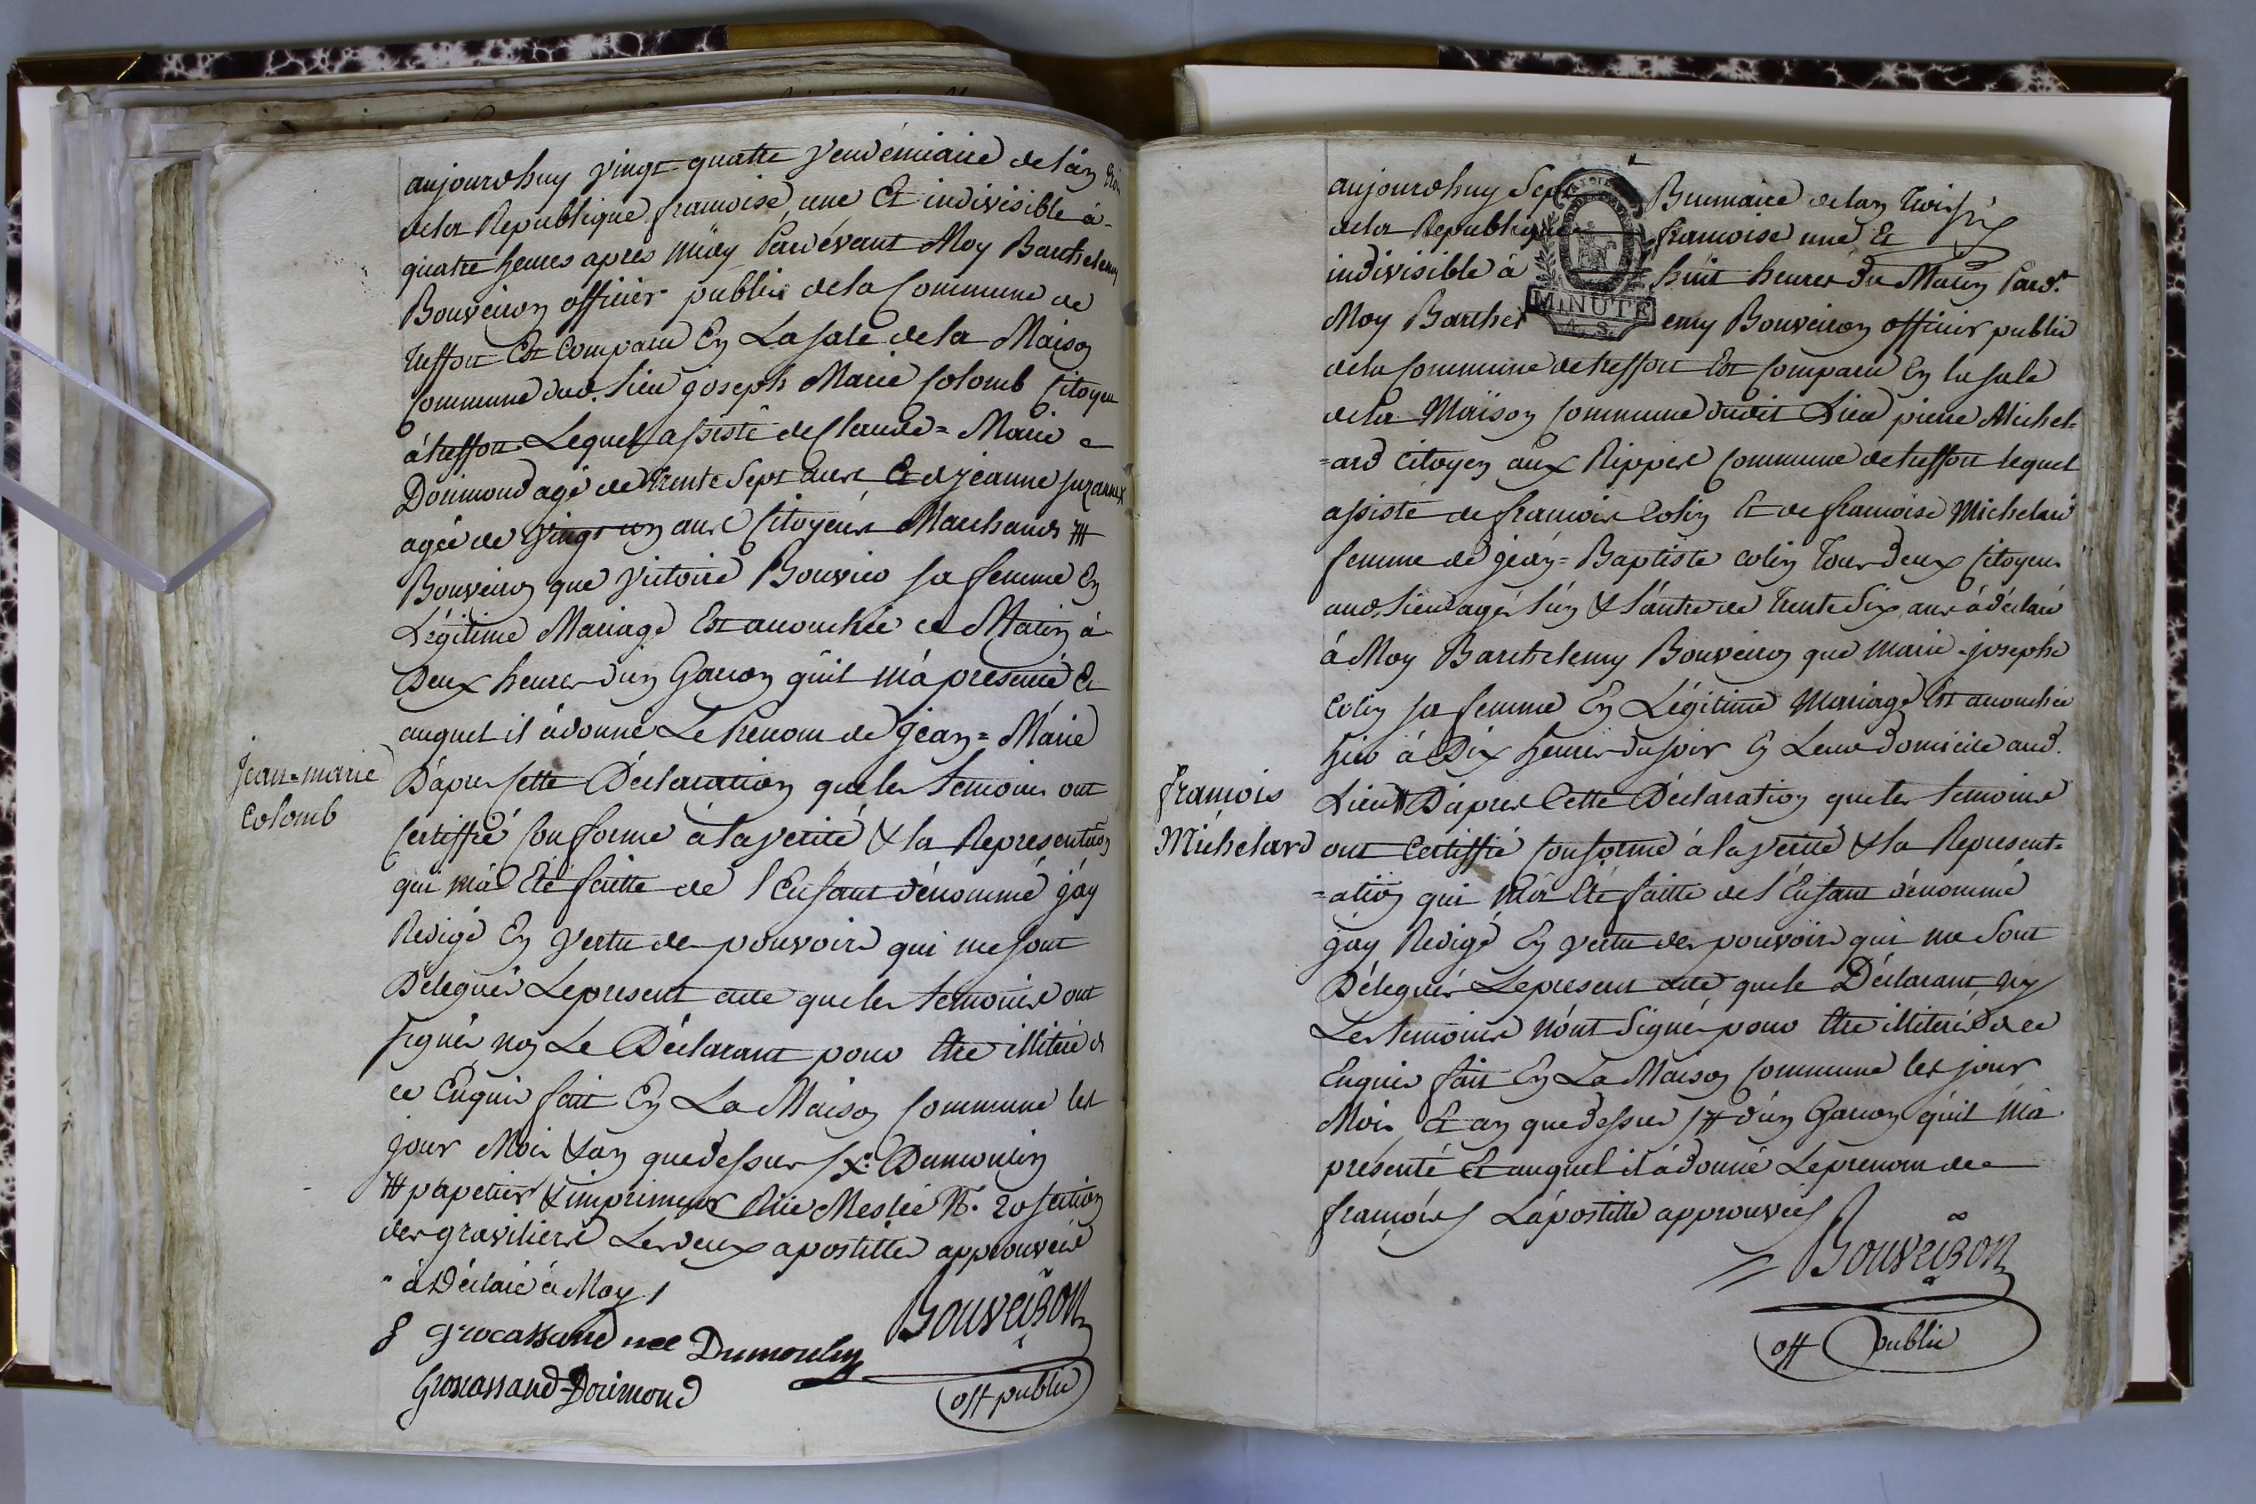 aujourdhuy vingt quatre vendémiaire de lan trois
dela Republique francoise une Et indivisible à
quatre heures apres midy Pardévant Moy Barthelemy
Bouveiron officier public dela Commune de
treffort Est Comparu En La sale dela Maison
Commune dud. Lieu joseph Marie Colomb Citoyen
à treffort Lequel assisté de Claude = Marie
Dorimond agé de trente Sept ans Et de jeanne suzanne X
agée de vingt un ans Citoyens Marchands ##
Bouveiron que victoire Bouvier sa femme En
Légitime Mariage Est accouchée ce Matin à
Deux heures d'un Garcon qu'il m'a presenté Et
auquel il à donné Le Prenom de jean = Marie
Jean-marie
Colomb
D'apres Cette Déclaration que les temoins ont
Certiffié Conforme à la verité & la Representaõn
qui m'a Eté faitte de l'Enfant dénommé j'ay
Redigé En vertu des pouvoirs qui me sont
Délegués Le present acte que les temoins ont
signés non Le Déclarant pour Etre illiteré de
ce Enquis fait En La Maison Commune les
jour Mois & an que dessus / X Dumoulin
## papetier & imprimeur Rüe Meslée N°. 20 section
des graviliers Les deux apostilles approuvées
" à Déclaré à Moy /
grocassand nee Dumoulin
Grosassand-Dorimond
Bouveiron
off public
aujourdhuy Sept Brumaire de lan Trois
dela Republique francoise une Et
indivisible à huit heures du Matin Pardt.
MINUTE
Moy Barthelemy Bouveiron officier public
dela Commune de treffort Est Comparu En la sale
dela Maison Commune dudit Lieu pierre Michel=
=ard Citoyen aux Rippes Commune de treffort lequel
assisté de francois Colin Et de francoise Michelard
femme de jean = Baptiste Colin Tous deux Citoyens
aud. Lieu agés l'un & l'autre de trente Six ans à déclaré
à Moy Barthelemy Bouveiron que marie-josephe
Colin sa femme En Légitime Mariage Est accouchée
hier à Dix heures du soir En Leur Domicile aud.
francois
Michelard
Lieu # D'apres Cette Déclaration que les temoins
ont Certiffié Conforme à la verité & la Represent=
=ation qui m'a Eté faitte de l'Enfant dénommé
j'ay Redigé En vertu des pouvoirs qui me Sont
Délegués Le present acte que le Déclarant ny
Les temoins n'ont Signés pour Etre illiterés de ce
Enquis fait En La Maison Commune les jour
Mois Et an que dessus / # d'un Garcon qu'il m'a
presenté Et auquel il à donné Le prenom de
francois / L'apostille approuvée /
Bouveiron
off public